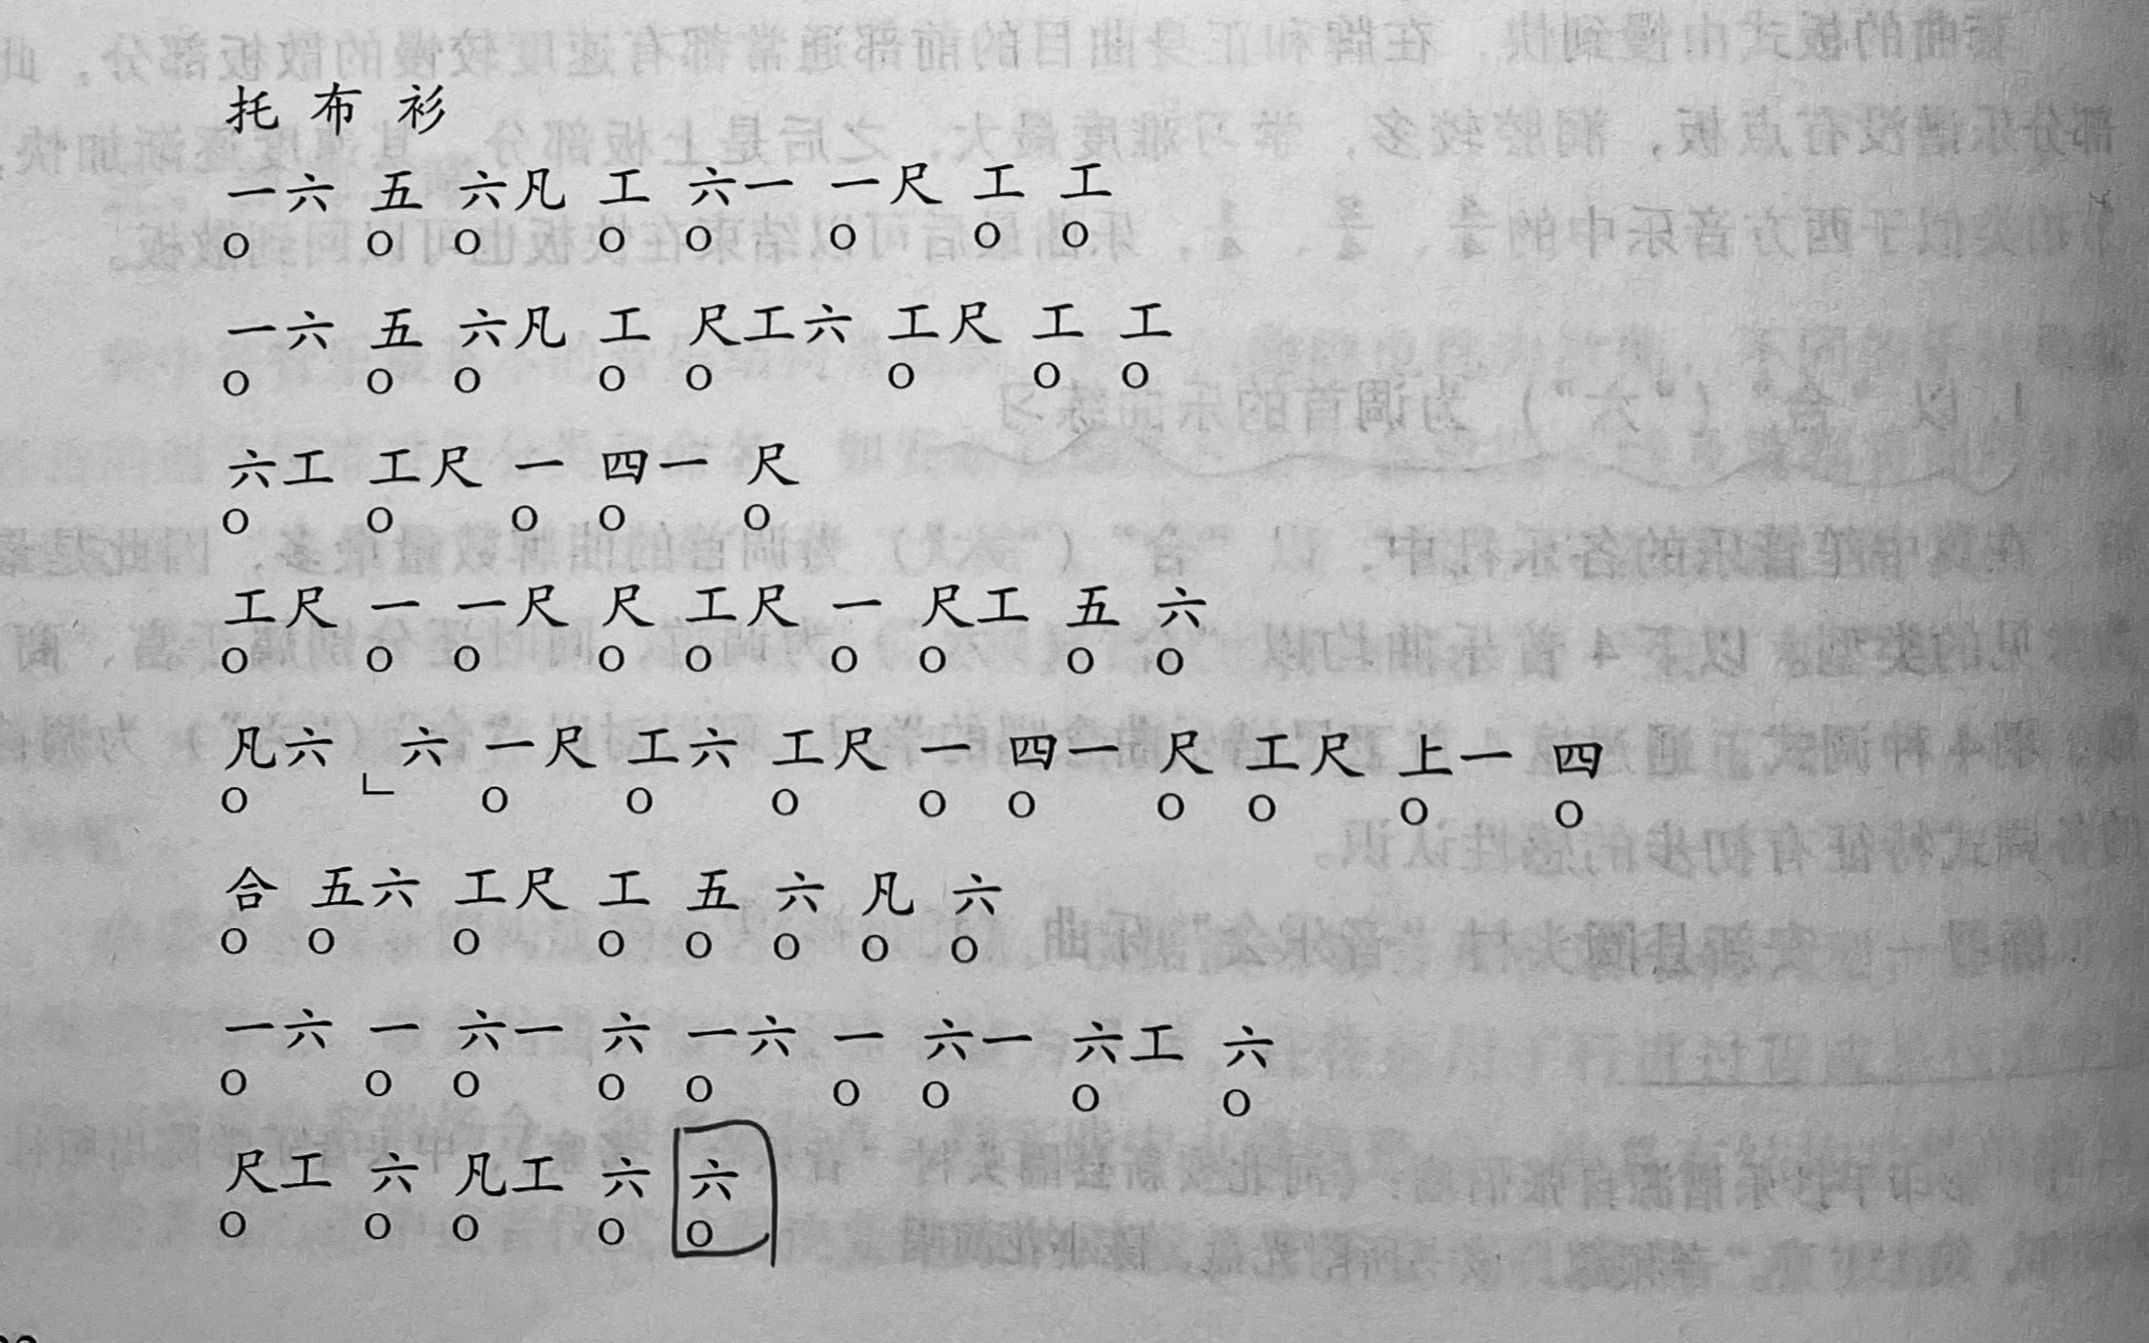 托 布 衫
一六 五 六凡 工 六一 一尺 工 工
o o o o o o o o
一六 五 六凡 工 尺工六 工尺 工 工
o o o o o o o o
六工 工尺 一 四一 尺
o o o o o
工尺 一 一尺 尺 工尺 一 尺工 五 六
o o o o o o o o o
凡六 六 一尺 工六 工尺 一 四一 尺 工尺 上一 四
o ∟ o o o o o o o o o
合 五六 工尺 工 五 六 凡 六
o o o o o o o o
一六 一 六一 六 一六 一 六一 六工 六
o o o o o o o o o
尺工 六 凡工 六 六
o o o o o